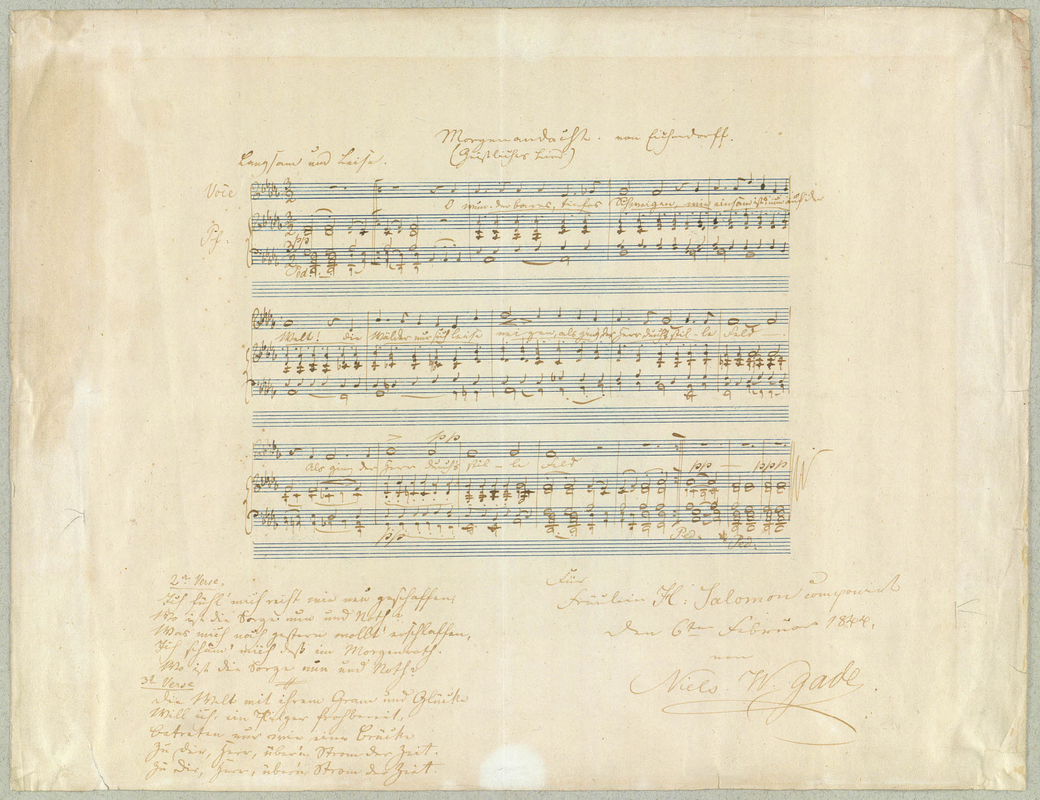 Morgenandacht. von Eichendorff.
(Geistliches Lied)
Langsam und Leise.
Voce
O wun-der-bares, tiefes Schweigen, wie einsam ists nun auf der
Pf.
pp
Ped.
Welt! die Wälder nur sich leise neigen, als ging der Herr durchs stil-le Feld
pp
Als ging der Herr durchs stil-le Feld
pp — ppp
pp
Ped. Ped.
2te Verse.
Ich fühl' mich recht wie neu geschaffen,
Wo ist die Sorge nun und Noth?
Was mich noch gestern wollt' erschlaffen,
Ich schäm' mich dess im Morgenroth.
Wo ist die Sorge nun und Noth?
3te Verse
Die Welt mit ihrem Gram und Glücke
Will ich, ein Pilger frohbereit,
Betreten nur wie eine Brücke
Zu dir, Herr, übern Strom der Zeit.
Zu dir, Herr, übern Strom der Zeit.
Für
Fräulein H: Salomon componirt
den 6ten Februar 1844.
von
Niels W. Gade.